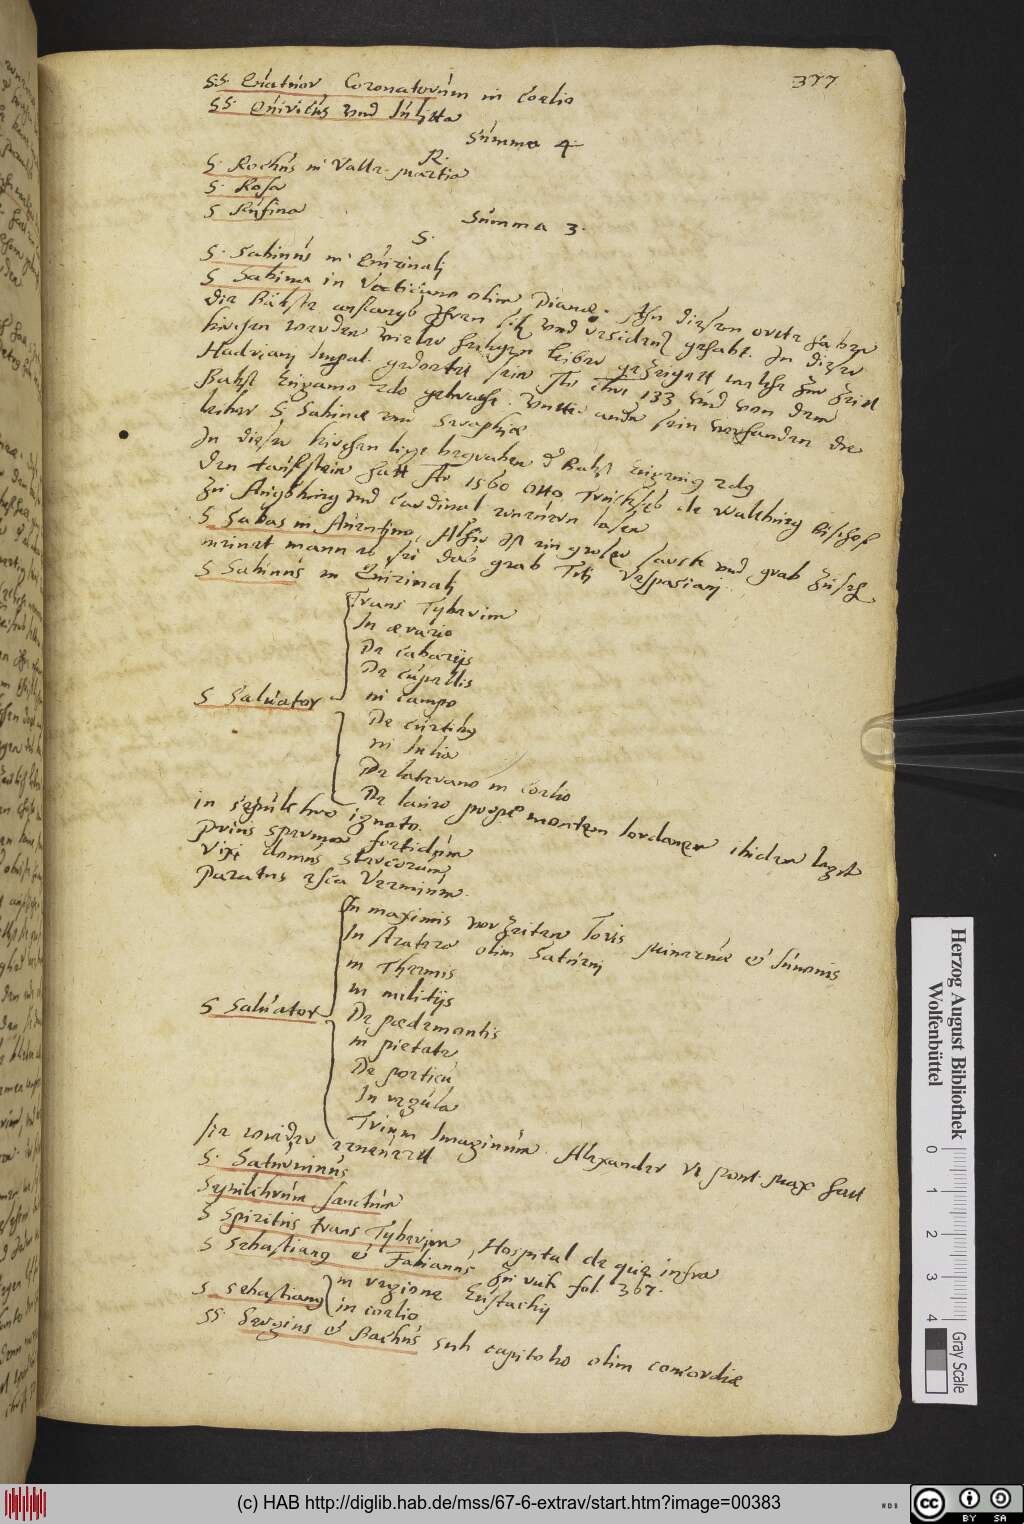 377
SS. Quatuor Coronatorum in Coelio
SS. Quiricus und Iulitta
Summa 4.
R.
S. Rochus in Valle martia
S. Rosa
S Rufina
Summa 3.
S.
S. Sabinus in Quirinalj
S Sabina in olim Dianæ. An diesem ortte haben
die Bäbste anfangs Ihren sitz und residentz gehabt. In dieser
kirchen werden vieler heiligen leiber gezeigett welche zur Zeitt
Hadrianj Impat. sein Ao Chri 133 und von dem
Babst Eugenio 2do gebracht. Untter andern sein verhanden die
leiber S Sabinæ und Seraphiæ
In dieser kirchen ligt begraben d Babst Eugenius 2dus
den tauffstein hatt Ao 1560 Otto Truchses de Waltburg Bischof
zu Augsburg und Cardinal vernewrn lasen
S Sabas in Auentino, Alhie ist ein groser sarck und grab zu sehen
meinet mann es sei das grab Titi Vespasianj.
S Sabinus in Quirinalj
S Saluator
Trans Tyberim
In ærario
De cabarijs
De cupellis
in campo
De curtibus
in Iulia
De laterano in Coelio
De lauro prope montem Iordanem ibidem legit
in sepulchro ignoto.
Prius sperma foetidum
Vixi domus stercorum
Paratus esca Vermium.
S Saluator
In maximis vor Zeiten Iovis minervæ & Iunonis
In statera olim Saturnj
in Thermis
in militijs
De pædemontis
in pietate
De porticu
In regula
Trium Imaginum. Alexander VI pont. max hatt
sie wider erneurett
S. Saturninus
Sepulchrum sanctum
S Spiritus trans Tyberim, Hospital de quo infra
S Sebastianus & Fabianus zu ruck fol. 367.
S Sebastianus
in regione Eustachij
in coelio
SS. Sergius & Bachus sub capitolio olim concordiæ
Herzog August Bibliothek
Wolfenbüttel
0 1 2 3 4
Gray Scale
(c) HAB http://diglib.hab.de/mss/67-6-extrav/start.htm?image=00383
WDB
CC BY SA